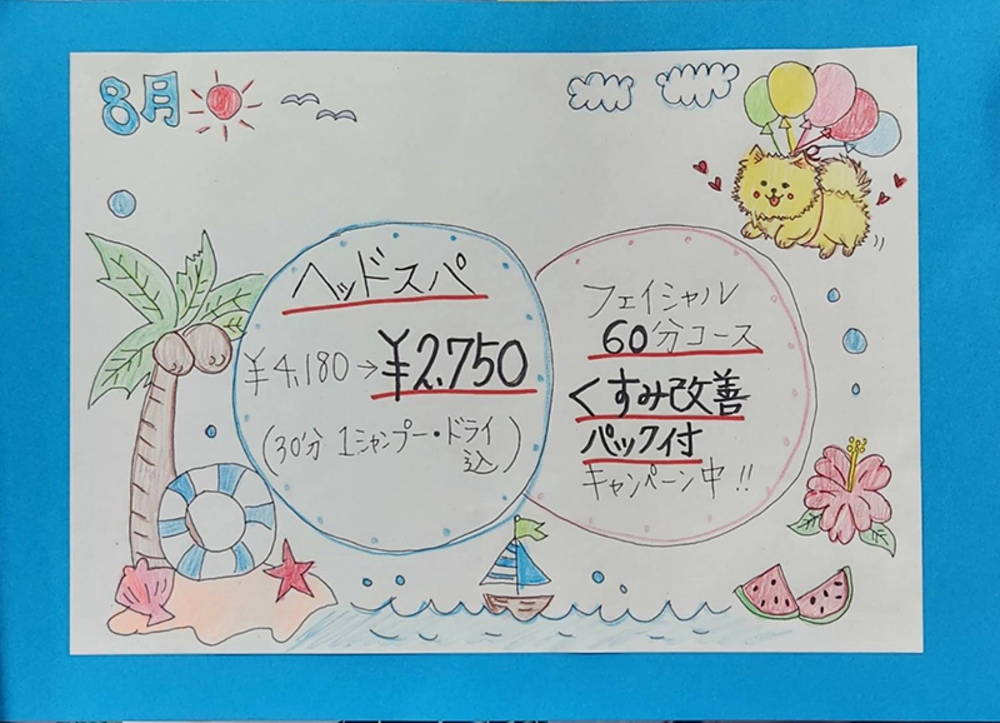 8月
ヘッドスパ
¥4,180→¥2,750
(30分 1シャンプー・ドライ
込)
フェイシャル
60分コース
くすみ改善
パック付
キャンペーン中!!